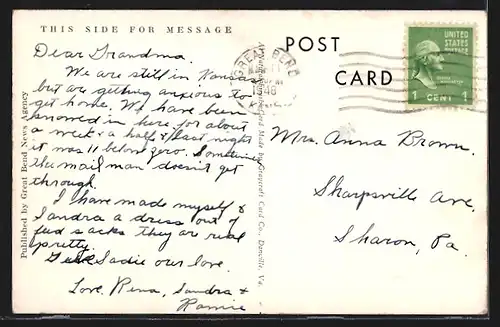 THIS SIDE FOR MESSAGE
Dear Grandma.
We are still in Kansas
but are getting anxious to
get home. We have been
snowed in here for about
a week & a half & last night
it was 11 below zero. Sometimes
the mail man doesn't get
through.
I have made myself &
Sandra a dress out of
feed sacks they are real
pretty.
Give Sadie our love.
Love, Rena, Sandra &
Ronnie
Published by Great Bend News Agency
Made by Graycraft Card Co., Danville, Va.
POST
CARD
GREAT BEND
1948
UNITED STATES
POSTAGE
1 CENT 1
Mrs. Anna Brown.
Sharpsville Ave.
Sharon, Pa.